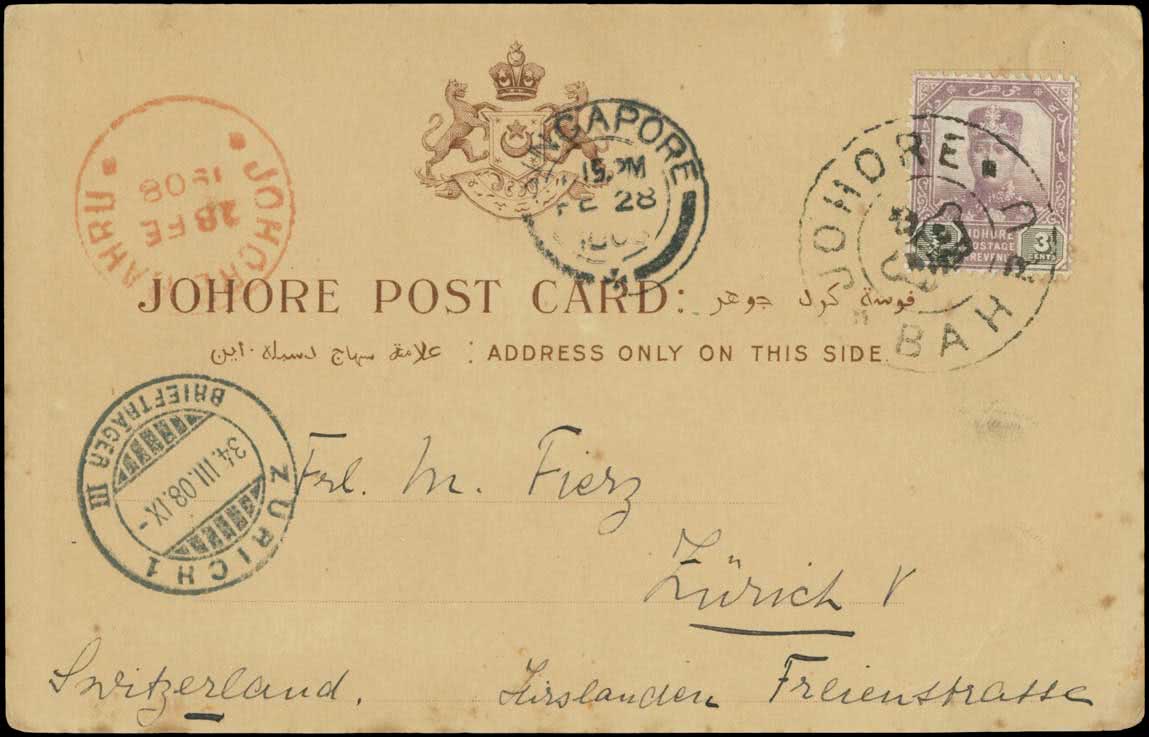 JOHORE BAHRU
28 FE
1908
SINGAPORE
FE 28
JOHORE BAHRU
JOHORE
POSTAGE
& REVENUE
3
CENTS
JOHORE POST CARD: فوسة كرد جوهر
علامة سهاج دسبله اين : ADDRESS ONLY ON THIS SIDE
ZÜRICH 1
BRIEFTRÄGER III
III.08.IX-
Frl. M. Fierz
Zürich V
Switzerland. Hirslanden Freienstrasse